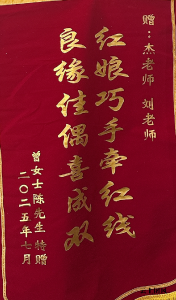 赠：杰老师 刘老师
红娘巧手牵红线
良缘佳偶喜成双
曾女士陈先生 特赠
二〇二五年七月